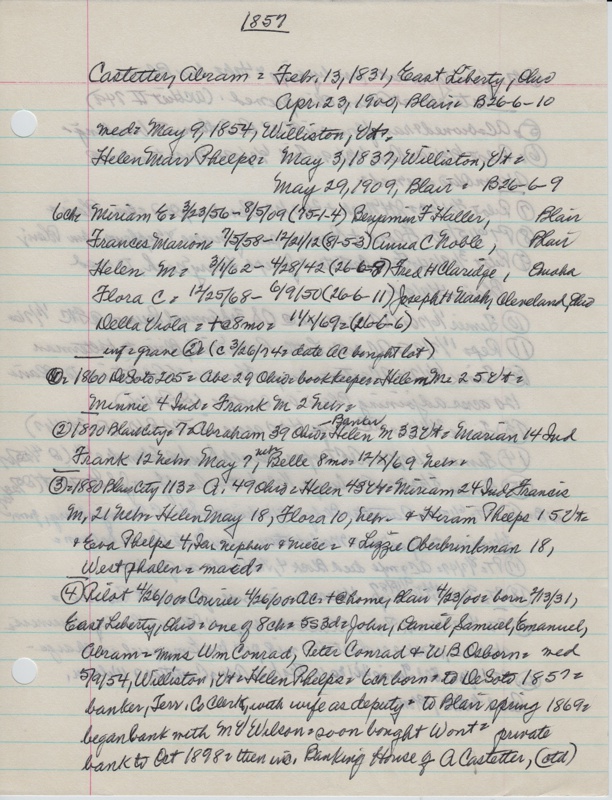 1857
Castetter, Abram = Feb. 13, 1831, East Liberty, Ohio
Apr. 23, 1900, Blair = B26-6-10
med = May 9, 1854, Williston, Vt =
Helen Marr Phelps = May 3, 1837, Williston, Vt =
May 29, 1909, Blair = B26-6-9
6ch = Miriam E = 3/23/56 - 8/5/09 (75-1-4) Benjamin F Haller, Blair
Frances Marion = 7/5/58 - 12/21/12 (81-5-3) Anna C Noble, Blair
Helen M = 3/1/62 - 4/28/42 (26-6-8) Fred H Claridge, Omaha
Flora C = 12/25/68 - 6/9/50 (26-6-11) Joseph H Nash, Cleveland, Ohio
Della Viola = + @ 8 mo = 14/X/69 = (26-6-6)
inf = grave (c 3/26/74 = date AC bought lot)
① = 1860 DeSoto 205 = Abe 29 Ohio = bookkeeper = Helen M 25 Vt =
Minnie 4 Ind = Frank M 2 Nebr =
② 1870 Blair City = 7 = Abraham 39 Ohio = Banker Helen M 33 Vt = Marian 14 Ind
Frank 12 Nebr May 7, Nebr Belle 8 mo = 12/X/69 Nebr =
③ = 1880 Blair City 113 = A. 49 Ohio = Helen 43 Vt = Miriam 24 Ind Francis
M, 21 Nebr = Helen May 18, Flora 10, Nebr & Hiram Phelps 15 Vt =
& Eva Phelps 4, Ia = nephew & niece = & Lizzie Oberbrinkman 18,
Westphalen = maid =
④ Pilot 4/26/00 = Courier 4/26/00 = AC + @ home, Blair 4/23/00 = born 2/13/31,
East Liberty, Ohio = one of 8ch = 5s3d = John, Daniel, Samuel, Emanuel,
Abram = Mmes Wm Conrad, Peter Conrad & W B Osborn = med
5/9/54, Williston, Vt = Helen Phelps = 6ch born = to DeSoto 1857 =
banker, Terr. Co Clerk, with wife as deputy = to Blair spring 1869 =
began bank with M V Wilson = soon bought W out = private
bank to Oct 1898 = then inc. Banking House of A Castetter, (otd)